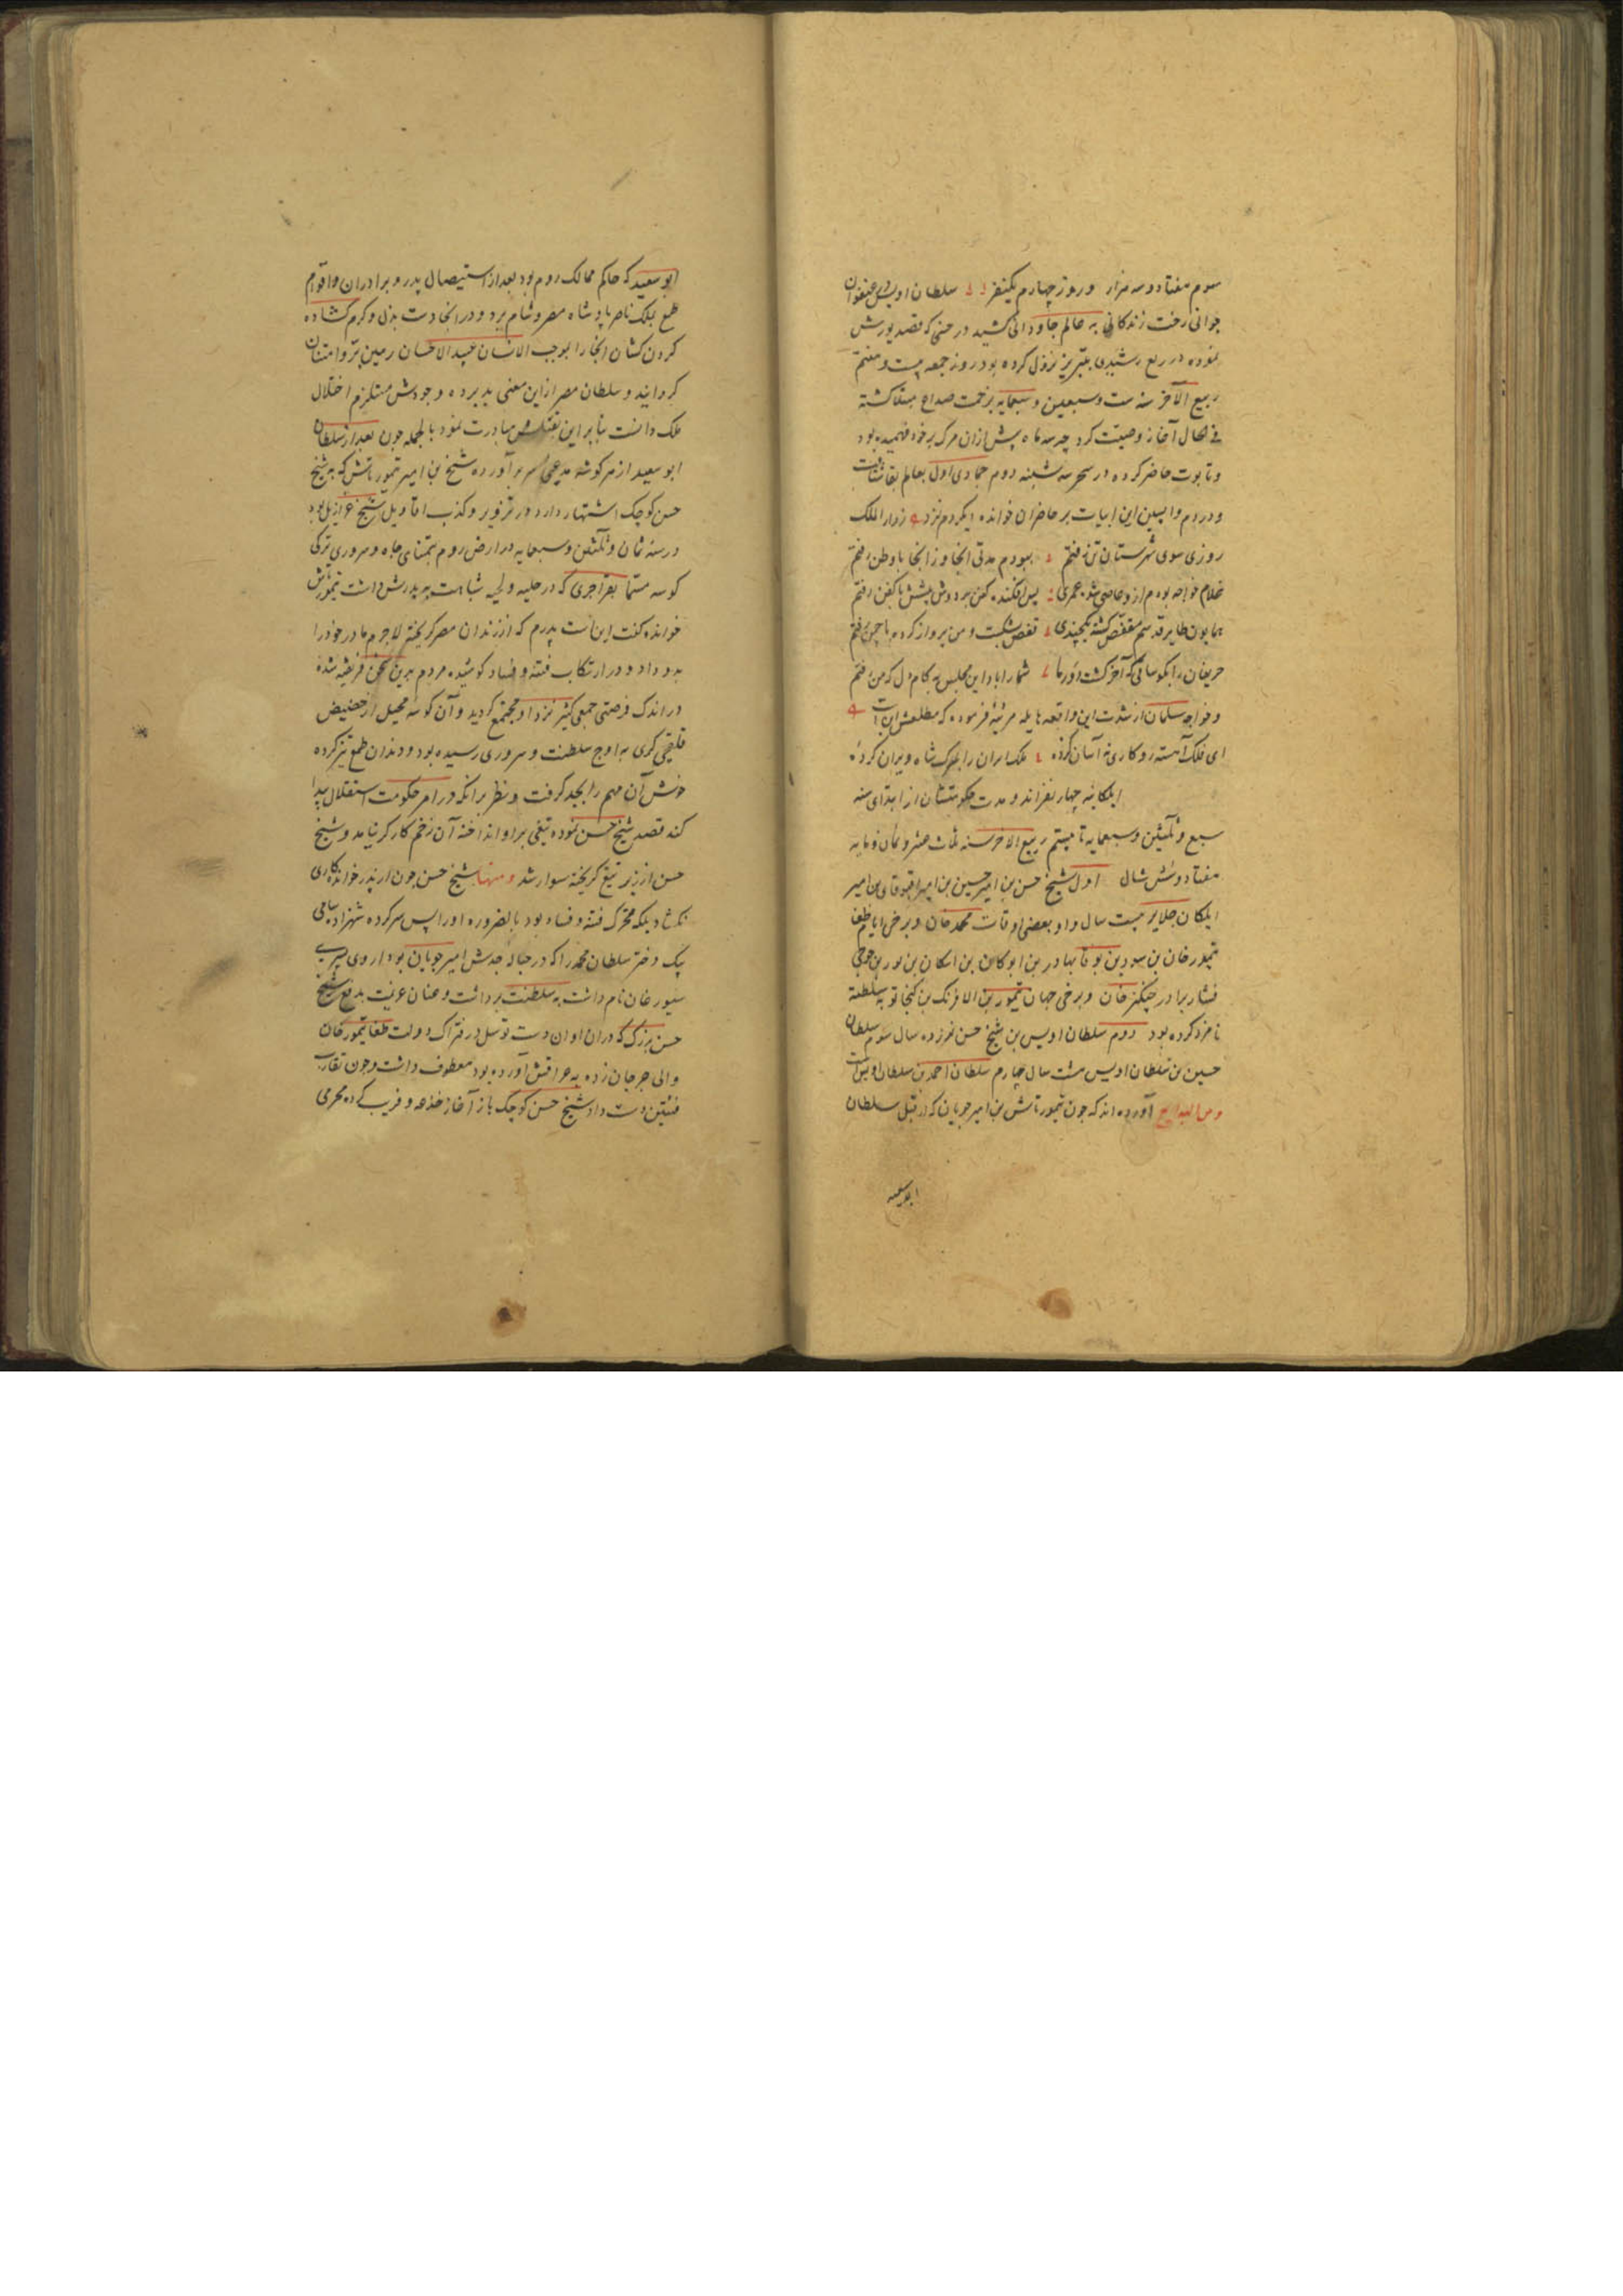 سوم هفتاد و سه هزار و روز چهارم یکنفر سلطان اویس در عنفوان
جوانی رخت زندکانی به عالم جاودانی کشید در حینی که قصد یورش
نموده در ربع رشیدی بتبریز نزول کرده بود روز جمعه بیست و هفتم
ربیع الآخر سنه ست و سبعین و سبعمایه بزحمت صداع مبتلا کشته
فی الحال آغاز وصیت کرد چه سه ماه پیش ازان مرک بر خود فهمیده بود
و تابوت حاضر کرده در سحر سه شنبه دوم جمادی اول بعالم بقا شتافت
و در دم واپسین این ابیات بر حاضران خوانده ز دار الملک
روزی سوی شهرستان تن رفتم بودم مدتی انجا وز انجا با وطن رفتم
غلام خواجه بودم ازو عاصی شده عمری پس افکنده کفن بر دوش پیشش با کفن رفتم
همایون طایر قدسم مقفص کشته یکچندی قفص شکست و من پرواز کردم با چمن رفتم
حریفان را بکو ساقی که آخر کشت دور ما شما را باد این مجلس به کام دل که من رفتم
و خواجه سلمان از شدت این واقعه هایله مرثیه فرموده که مطلعش این است
ای فلک آهسته رو کاری نه آسان کرده ملک ایران را بمرک شاه ویران کرده
ایلکانیه چهار نفراند و مدت حکومتشان از ابتدای سنه
سبع و ثلثین و سبعمایه تا بیستم ربیع الاخر سنه ثلث عشر و ثمان مایه
هفتاد و شش سال اول شیخ حسن بن امیر حسین بن امیر اقبوقا بن امیر
ایلکان جلایر بیست سال و او بعضی اوقات محمد خان و برخی ایام طغا
تیمور خان بن سودبن بوقا بهادر بن ابوکان بن اسکان بن نور بن جوجی
قشار برادر چنکیز خان و برخی جهان تیمور بن الافرنک بن کیخاتو به سلطنة
نامزد کرده بود دوم سلطان اویس بن شیخ حسن نوزده سال سوم سلطان
حسین بن سلطان اویس هشت سال چهارم سلطان احمد بن سلطان اویس
آورده اند که جون تیمورتاش بن امیر جوپان که از قبل سلطان
ابو سعید
ابو سعید که حاکم ممالک روم بود بعد از استیصال پدر و برادران و اقوام
طمع بملک ناصر پادشاه مصر و شام برد و در انجا دست بذل و کرم کشاده
کردن کشان انجا را بموجب الانسان عبید الاحسان رهین بر و امتنان
کردانید و سلطان مصر ازین معنی بد برده وجودش مستلزم اختلال
ملک دانست بنا بر این بقتلش مبادرت نمود بالجمله جون بعد از سلطان
ابو سعید از هر کوشه مدعی سر بر آورده شیخ بن امیر تیمورتاش که به شیخ
حسن کوچک اشتهار دارد و در تزویر و کذب اقاویل شیخ عزازیل بود
در سنه ثمان و ثلثین و سبعمایه در ارض روم بتمنای جاه و سروری ترکی
کوسه مسما بقراجری که در حلیه و لحیه شباهت به پدرش داشت تیمورتاش
خوانده کفت این است پدرم که از زندان مصر کریخته لاجرم مادر خود را
بدو داد و در ارتکاب فتنه و فساد کوشیده مردم بدین سخن فریفته شده
در اندک فرصتی جمعی کثیر نزد او مجتمع کردید و آن کوسه محیل از حضیض
قلقچی کری به اوج سلطنت و سروری رسیده بود و دندان طمع تیز کرده
خوش آن مهم را بجد کرفت و نظر بر انکه در امر حکومت استقلال پیدا
کند قصد شیخ حسن نموده تیغی بر او انداخته آن زخم کارکر نیامد و شیخ
حسن از زیر تیغ کریخته سوار شد و منها شیخ حسن جون از پدر خوانده کاری
نکشاد بلکه محرک فتنه و فساد بود بالضروره او را پس سر کرده شهزاده ساتی
بیک دختر سلطان محمد را که در حباله جدش امیر جوپان بود از وی پسری
سیورغان نام داشت به سلطنت برداشت و عنان عزیمت بدفع شیخ
حسن بزرک که دران اوان دست توسل در فتراک دولت طغا تیمور خان
والی جرجان زده به عراقش آورده بود معطوف داشت و جون تقارب
فئتین دست داد شیخ حسن کوچک باز آغاز خدعه و فریب کرده محرمی